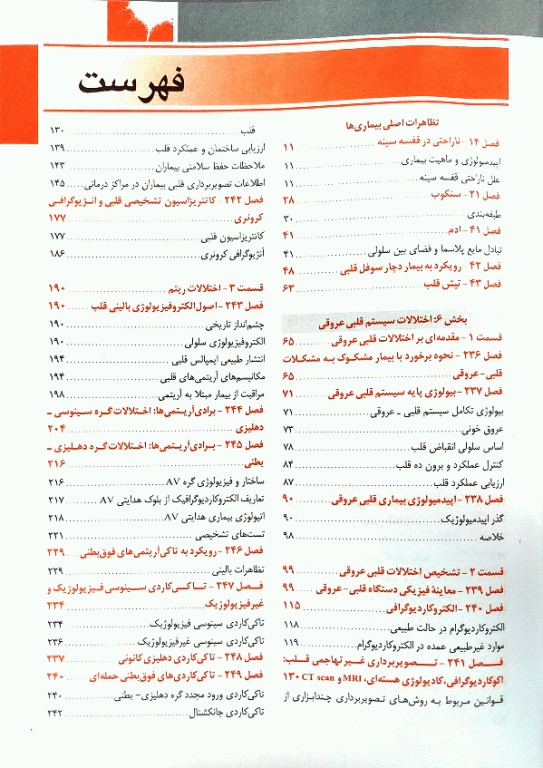 فهرست
تظاهرات اصلی بیماری‌ها
فصل ۱۴ - ناراحتی در قفسه سینه ۱۱
اپیدمیولوژی و ماهیت بیماری ۱۱
علل ناراحتی قفسه سینه ۱۱
فصل ۲۱ - سنکوپ ۲۸
طبقه‌بندی ۳۰
فصل ۴۱ - ادم ۴۱
تبادل مایع پلاسما و فضای بین سلولی ۴۱
فصل ۴۲ رویکرد به بیمار دچار سوفل قلبی ۴۸
فصل ۴۳ - تپش قلب ۶۳
بخش ۶: اختلالات سیستم قلبی عروقی
قسمت ۱ - مقدمه‌ای بر اختلالات قلبی عروقی ۶۵
فصل ۲۳۶ - نحوه برخورد با بیمار مشکوک به مشکلات
قلبی - عروقی ۶۵
فصل ۲۳۷ - بیولوژی پایه سیستم قلبی عروقی ۷۱
بیولوژی تکامل سیستم قلبی ـ عروقی ۷۱
عروق خونی ۷۳
اساس سلولی انقباض قلب ۷۸
کنترل عملکرد و برون ده قلب ۸۴
ارزیابی عملکرد قلب ۸۷
فصل ۲۳۸ - اپیدمیولوژی بیماری قلبی عروقی ۹۰
گذر اپیدمیولوژیک ۹۰
خلاصه ۹۸
قسمت ۲ - تشخیص اختلالات قلبی عروقی ۹۹
فصل ۲۳۹ - معاینهٔ فیزیکی دستگاه قلبی - عروقی ۹۹
فصل ۲۴۰ - الکتروکاردیوگرافی ۱۱۵
الکتروکاردیوگرام در حالت طبیعی ۱۱۸
موارد غیرطبیعی عمده در الکتروکاردیوگرام ۱۱۹
فصل ۲۴۱ - تصویربرداری غیرتهاجمی قلب:
اکوکاردیوگرافی، کادیولوژی هسته‌ای، MRI و CT scan ۱۳۰
قوانین مربوط به روش‌های تصویربرداری چندابزاری از
قلب ۱۳۰
ارزیابی ساختمان و عملکرد قلب ۱۳۹
ملاحظات حفظ سلامتی بیماران ۱۴۳
اطلاعات تصویربرداری قلبی بیماران در مراکز درمانی ۱۴۵
فصل ۲۴۲ - کاتتریزاسیون تشخیصی قلبی و آنژیوگرافی
کرونری ۱۷۷
کاتتریزاسیون قلبی ۱۷۷
آنژیوگرافی کرونری ۱۸۶
قسمت ۳ - اختلالات ریتم ۱۹۰
فصل ۲۴۳ - اصول الکتروفیزیولوژی بالینی قلب ۱۹۰
چشم‌انداز تاریخی ۱۹۰
الکتروفیزیولوژی سلولی ۱۹۰
انتشار طبیعی ایمپالس قلبی ۱۹۴
مکانیسم‌های آریتمی‌های قلبی ۱۹۴
مراقبت از بیمار مبتلا به آریتمی ۱۹۸
فصل ۲۴۴ - برادی‌آریتمی‌ها: اختلالات گره سینوسی ـ
دهلیزی ۲۰۴
فصل ۲۴۵ - برادی‌آریتمی‌ها: اختلالات گره دهلیزی ـ
بطنی ۲۱۶
ساختار و فیزیولوژی گره AV ۲۱۶
تعاریف الکتروکاردیوگرافیک از بلوک هدایتی AV ۲۱۷
اتیولوژی بیماری هدایتی AV ۲۱۸
تست‌های تشخیصی ۲۲۱
فصل ۲۴۶ - رویکرد به تاکی‌آریتمی‌های فوق‌بطنی ۲۲۹
تظاهرات بالینی ۲۲۹
فصل ۲۴۷ - تاکی‌کاردی سینوسی فیزیولوژیک و
غیرفیزیولوژیک ۲۳۴
تاکی‌کاردی سینوسی فیزیولوژیک ۲۳۴
تاکی‌کاردی سینوسی غیرفیزیولوژیک ۲۳۶
فصل ۲۴۸ - تاکی‌کاردی دهلیزی کانونی ۲۳۷
فصل ۲۴۹ - تاکی‌کاردی‌های فوق‌بطنی حمله‌ای ۲۴۰
تاکی‌کاردی ورود مجدد گره دهلیزی- بطنی ۲۴۰
تاکی‌کاردی جانکشنال ۲۴۲